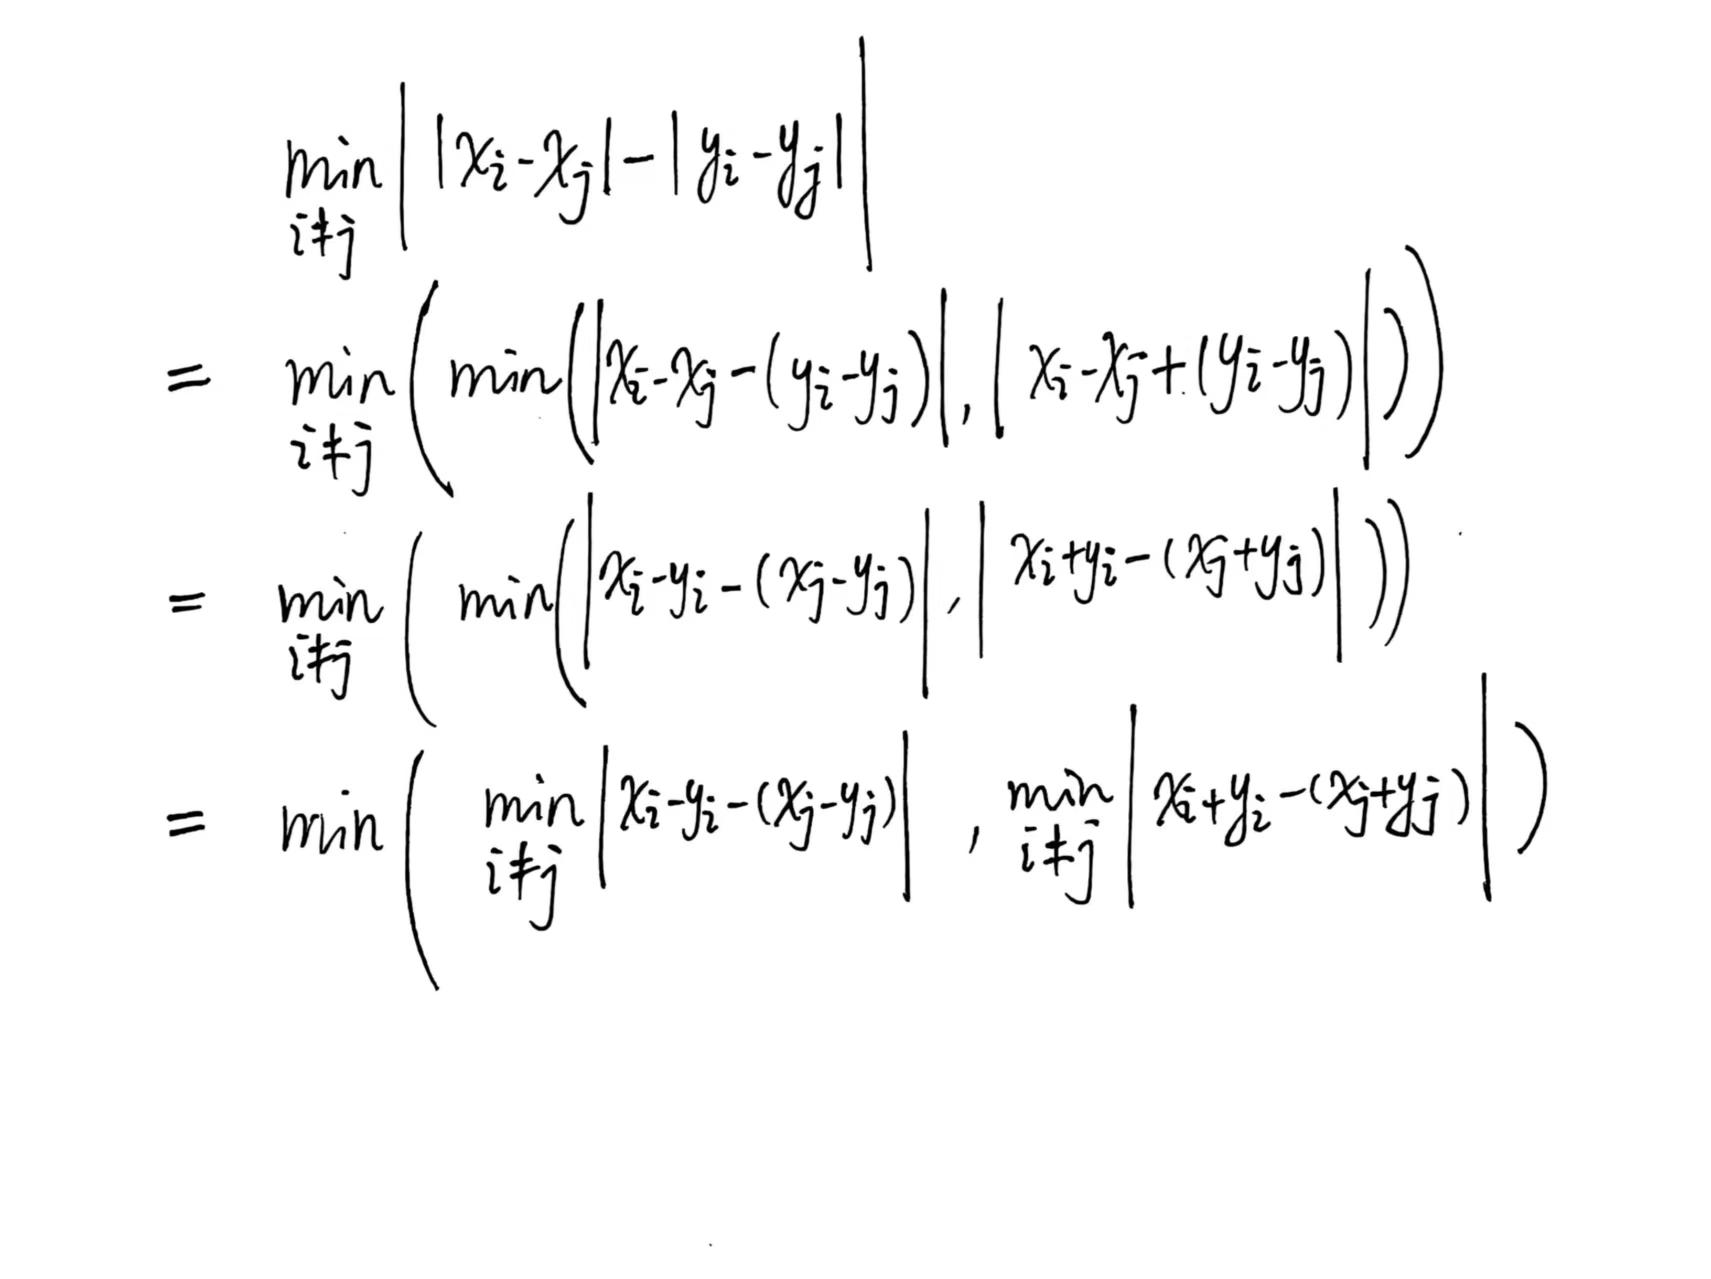 min_{i≠j} | |x_i - x_j| - |y_i - y_j| |
= min_{i≠j} ( min( | x_i - x_j - (y_i - y_j) | , | x_i - x_j + (y_i - y_j) | ) )
= min_{i≠j} ( min( | x_i - y_i - (x_j - y_j) | , | x_i + y_i - (x_j + y_j) | ) )
= min ( min_{i≠j} | x_i - y_i - (x_j - y_j) | , min_{i≠j} | x_i + y_i - (x_j + y_j) | )